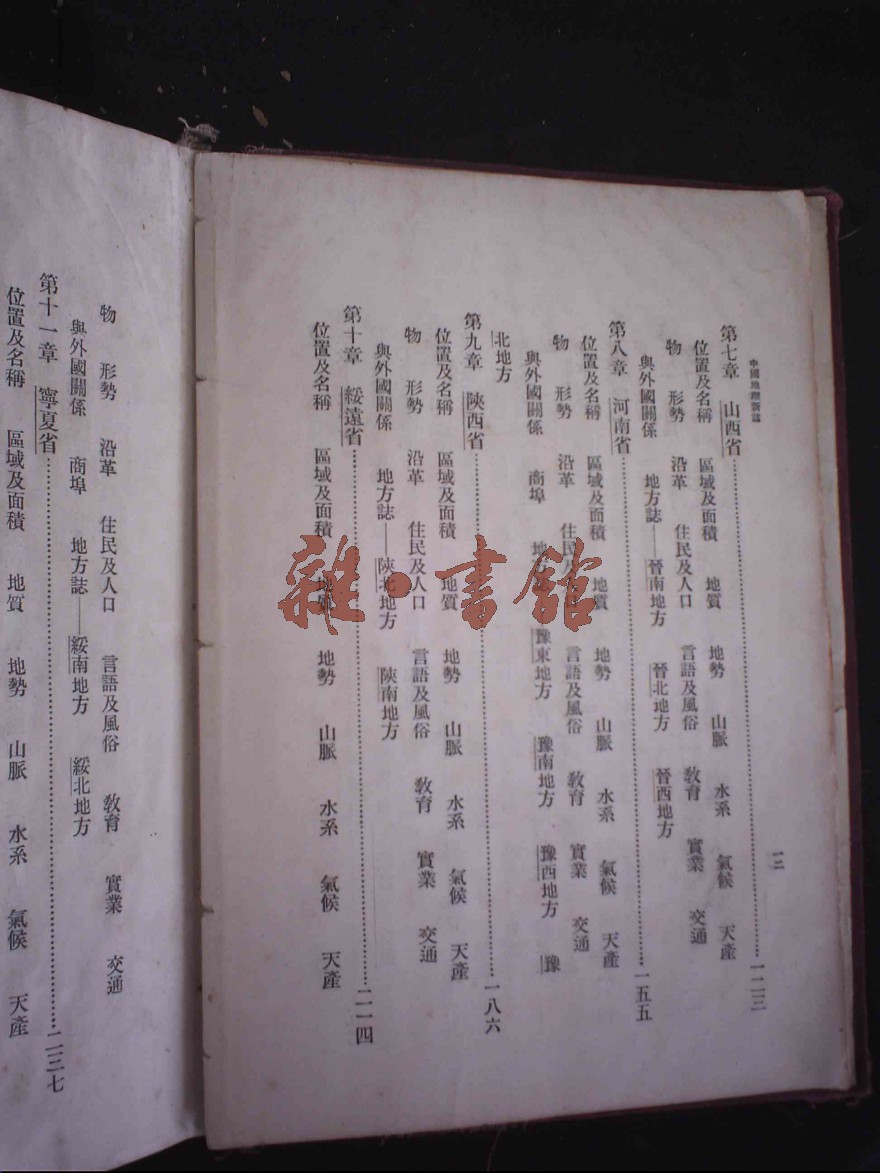 中國地理新誌
一二
第七章 山西省……一二三
位置及名稱 區域及面積 地質 地勢 山脈 水系 氣候 天產
物 形勢 沿革 住民及人口 言語及風俗 教育 實業 交通
與外國關係 地方誌——晉南地方 晉北地方 晉西地方
第八章 河南省……一五五
位置及名稱 區域及面積 地質 地勢 山脈 水系 氣候 天產
物 形勢 沿革 住民及人口 言語及風俗 教育 實業 交通
與外國關係 商埠 地方誌——豫東地方 豫南地方 豫西地方 豫
北地方
第九章 陝西省……一八六
位置及名稱 區域及面積 地質 地勢 山脈 水系 氣候 天產
物 形勢 沿革 住民及人口 言語及風俗 教育 實業 交通
與外國關係 地方誌——陝北地方 陝南地方
第十章 綏遠省……二一四
位置及名稱 區域及面積 地質 地勢 山脈 水系 氣候 天產
物 形勢 沿革 住民及人口 言語及風俗 教育 實業 交通
與外國關係 商埠 地方誌——綏南地方 綏北地方
第十一章 寧夏省……二三七
位置及名稱 區域及面積 地質 地勢 山脈 水系 氣候 天產
雜·書館